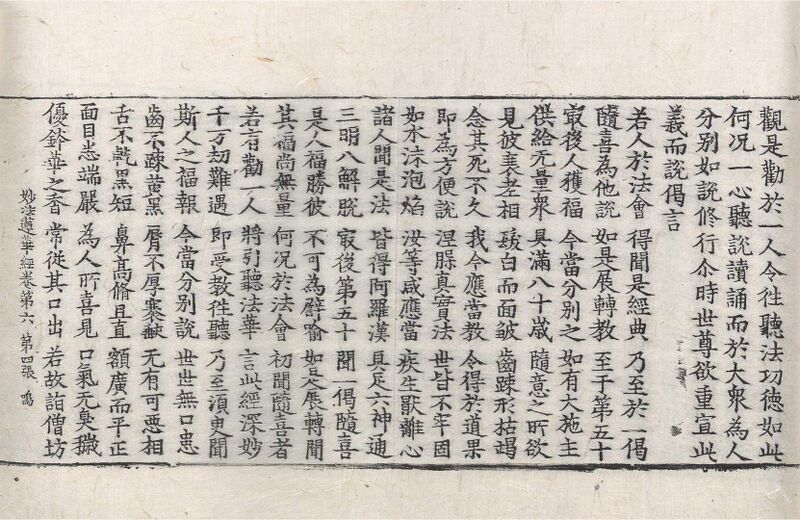 觀是勸於一人令徃聽法功徳如此
何况一心聽說讀誦而於大衆為人
分别如說修行尒時世尊欲重宣此
義而說偈言
若人於法會 得聞是經典 乃至於一偈
隨喜為他說 如是展轉教 至于第五十
㝡後人獲福 今當分别之 如有大施主
供給无量衆 具滿八十歲 隨意之所欲
見彼衰老相 髮白而面皺 齒踈形枯竭
念其死不久 我今應當教 令得於道果
即為方便說 涅槃真實法 世皆不牢固
如水沫泡焰 汝等咸應當 疾生猒離心
諸人聞是法 皆得阿羅漢 具足六神通
三明八解脫 㝡後第五十 聞一偈隨喜
是人福勝彼 不可為譬喻 如是展轉聞
其福尚無量 何况於法會 初聞隨喜者
若有勸一人 將引聽法華 言此經深妙
千万劫難遇 即受教徃聽 乃至須臾聞
斯人之福報 今當分别說 世世無口患
齒不踈黃黑 脣不厚褰缺 无有可惡相
舌不乾黑短 鼻髙脩且直 額廣而平正
面目悉端嚴 為人所喜見 口氣无臭穢
優鉢華之香 常從其口出 若故詣僧坊
妙法蓮華經卷第六 第四張